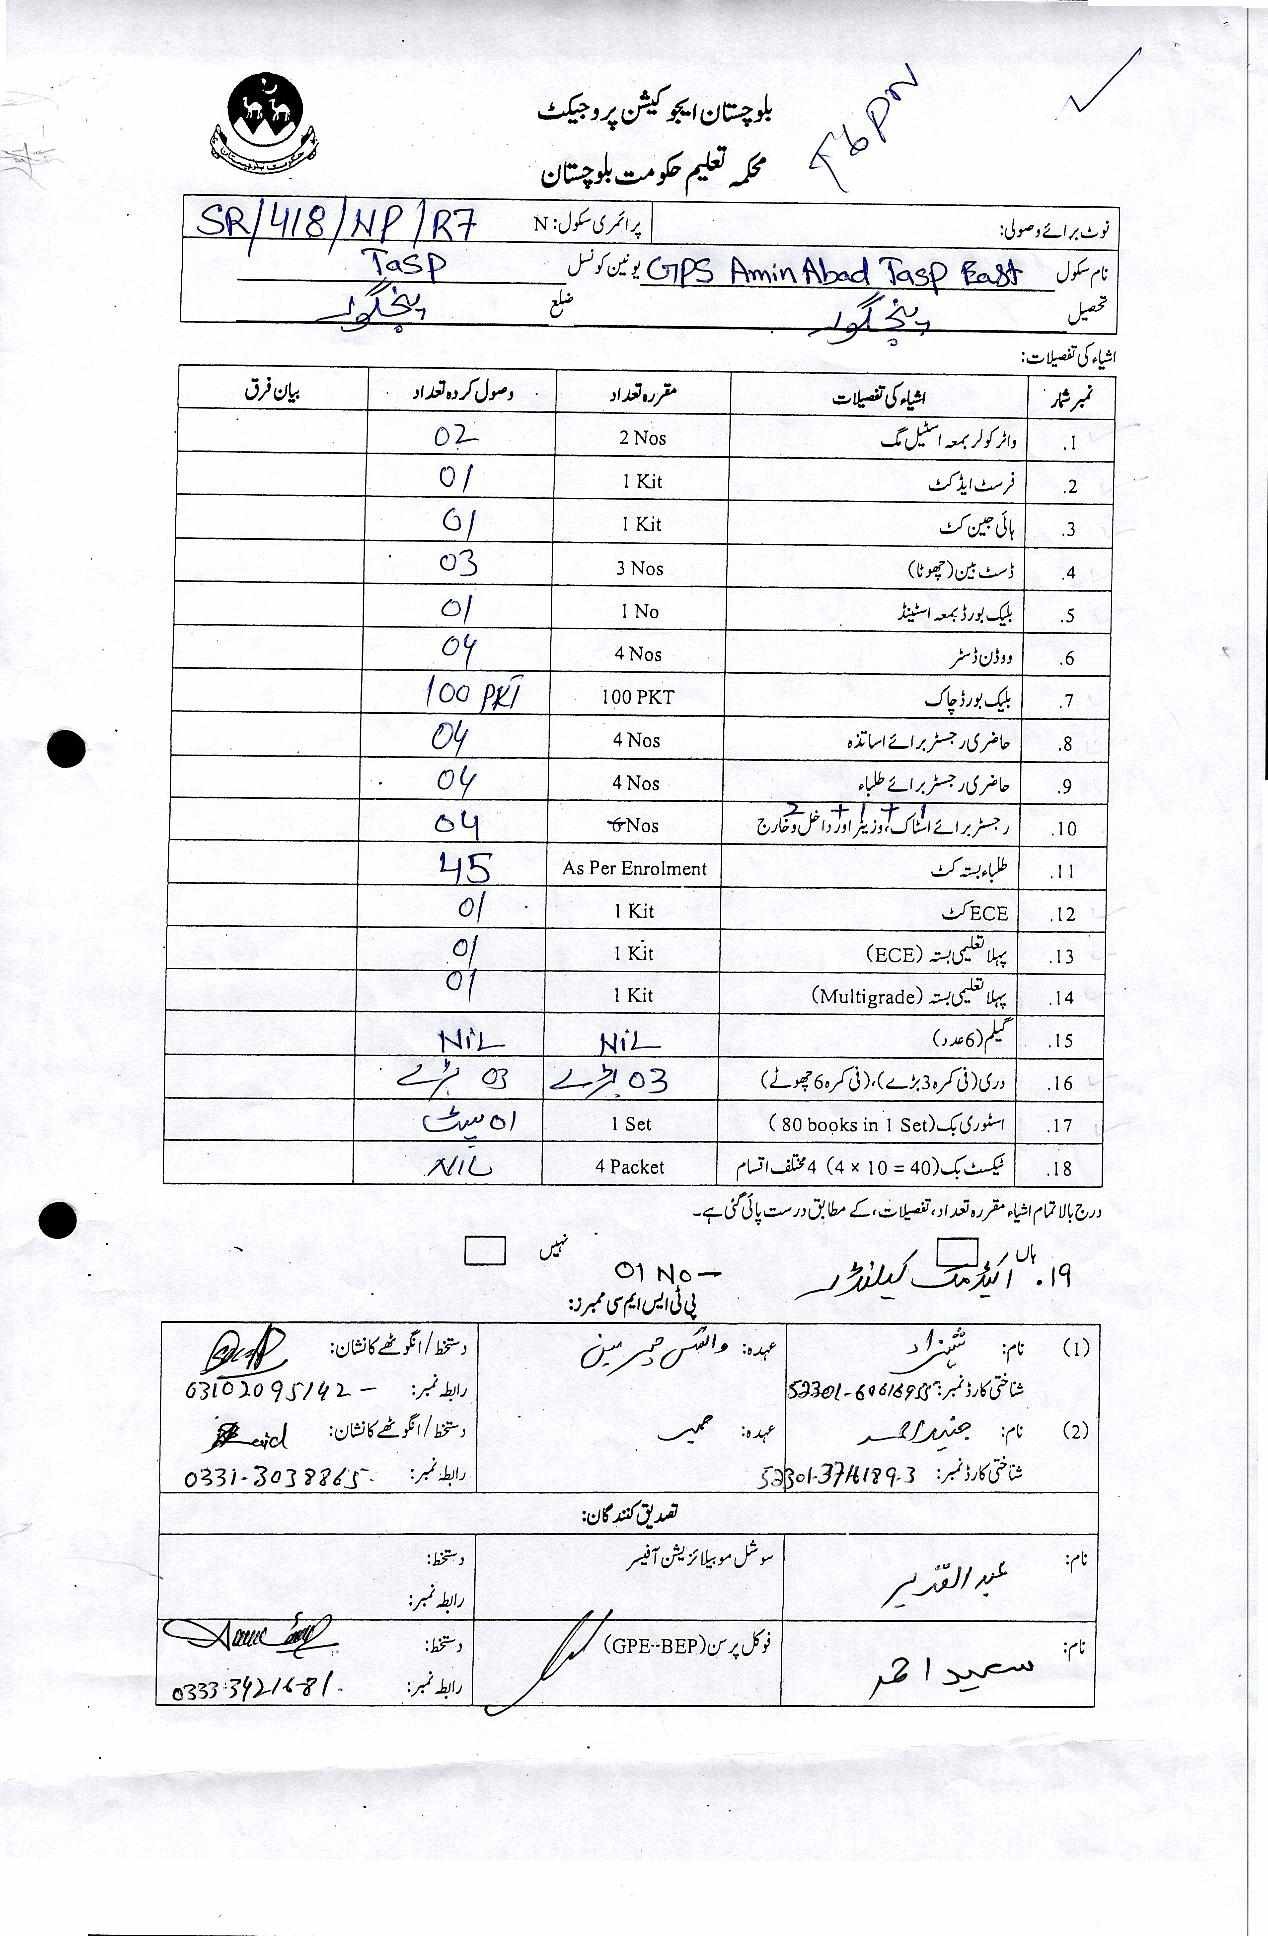 بلوچستان ایجوکیشن پروجیکٹ
محکمہ تعلیم حکومت بلوچستان
حکومت بلوچستان
نوٹ برائے وصولی: پرائمری سکول: N SR/418/NP/R7
نام سکول GPS Amin Abad Tasp East یونین کونسل Tasp
تحصیل پنجگور ضلع پنجگور
اشیاء کی تفصیلات:
نمبر شمار اشیاء کی تفصیلات مقررہ تعداد وصول کردہ تعداد بیان فرق
1. واٹر کولر بمعہ اسٹیل مگ 2 Nos 02
2. فرسٹ ایڈ کٹ 1 Kit 01
3. ہائی جین کٹ 1 Kit 01
4. ڈسٹ بین (چھوٹا) 3 Nos 03
5. بلیک بورڈ بمعہ اسٹینڈ 1 No 01
6. ووڈن ڈسٹر 4 Nos 04
7. بلیک بورڈ چاک 100 PKT 100 PKT
8. حاضری رجسٹر برائے اساتذہ 4 Nos 04
9. حاضری رجسٹر برائے طلباء 4 Nos 04
1 + 1 + 2
10. رجسٹر برائے اسٹاک، وزیٹر اور داخل و خارج 6 Nos 04
11. طلباء بستہ کٹ As Per Enrolment 45
12. ECE کٹ 1 Kit 01
13. پہلا تعلیمی بستہ (ECE) 1 Kit 01
14. پہلا تعلیمی بستہ (Multigrade) 1 Kit 01
15. گیلم (6 عدد) NiL NiL
16. دری (فی کمرہ 3 بڑے)، (فی کمرہ 6 چھوٹے) 03 بڑے 03 بڑے
17. اسٹوری بک (80 books in 1 Set) 1 Set 01 سیٹ
18. ٹیکسٹ بک (4 × 10 = 40) 4 مختلف اقسام 4 Packet NIL
درج بالا تمام اشیاء مقررہ تعداد، تفصیلات، کے مطابق درست پائی گئی ہے۔
ہاں نہیں
۱۹. اکیڈمک کیلنڈر 01 No –
پی ٹی ایس ایم سی ممبرز:
(1) نام: شہزاد عہدہ: وائس چیرمین دستخط/انگوٹھے کا نشان:
شناختی کارڈ نمبر: رابطہ نمبر: 03102095142 –
(2) نام: جنید احمد عہدہ: ممبر دستخط/انگوٹھے کا نشان:
شناختی کارڈ نمبر: رابطہ نمبر: 0331-3038865
تصدیق کنندگان:
نام: عبدالقدیر سوشل موبیلائزیشن آفیسر دستخط:
رابطہ نمبر:
نام: سعید احمد فوکل پرسن (GPE--BEP) دستخط:
رابطہ نمبر: 0333-3421681